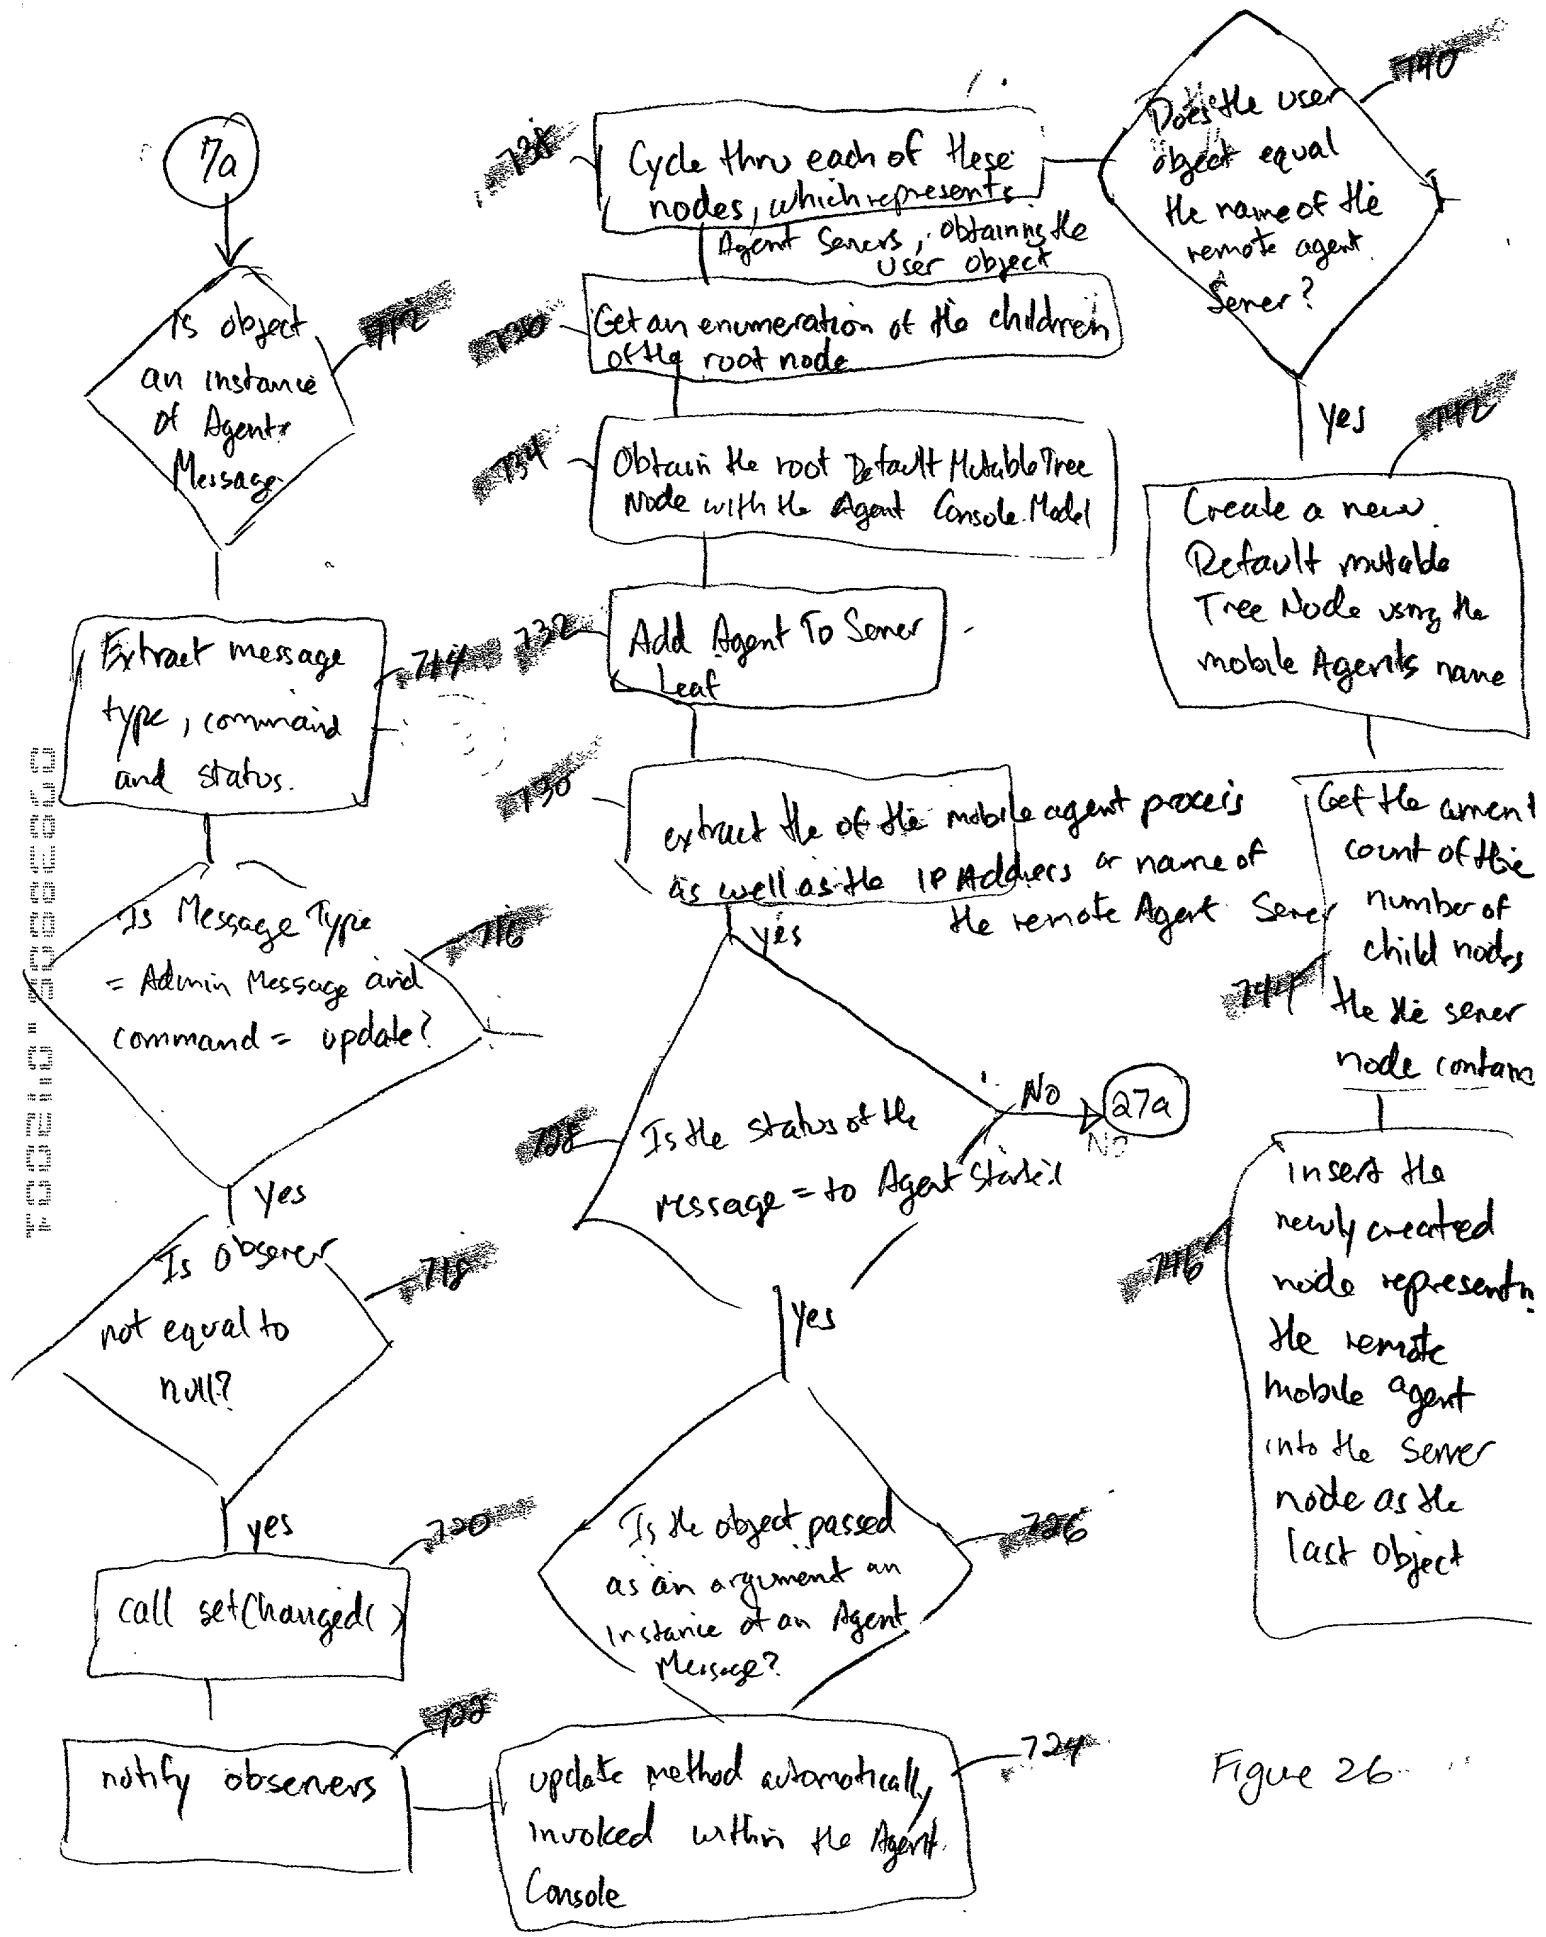 7a
Is object
an instance
of Agent
Message
712
Extract message
type, command
and status.
714
Is Message Type
= Admin Message and
command = update?
716
yes
Is Observer
not equal to
null?
718
yes
call setChanged()
720
notify observers
722
update method automatically
invoked within the Agent
Console
724
Is the object passed
as an argument an
instance of an Agent
Message?
726
yes
Is the status of the
message = to Agent Started
728
No
27a
No
yes
extract the of the mobile agent process
as well as the IP Address or name of
the remote Agent Server
730
Add Agent To Server
Leaf
732
Obtain the root Default MutableTree
Node with the Agent Console Model
734
Get an enumeration of the children
of the root node
Cycle thru each of these
nodes, which represents
Agent Servers, obtaining the
user object
738
Does the user
object equal
the name of the
remote agent
Server?
740
yes
Create a new
Default mutable
Tree Node using the
mobile Agents name
742
Get the current
count of the
number of
child nodes
the the server
node contains
744
insert the
newly created
node representin
the remote
mobile agent
into the server
node as the
last Object
746
Figure 26